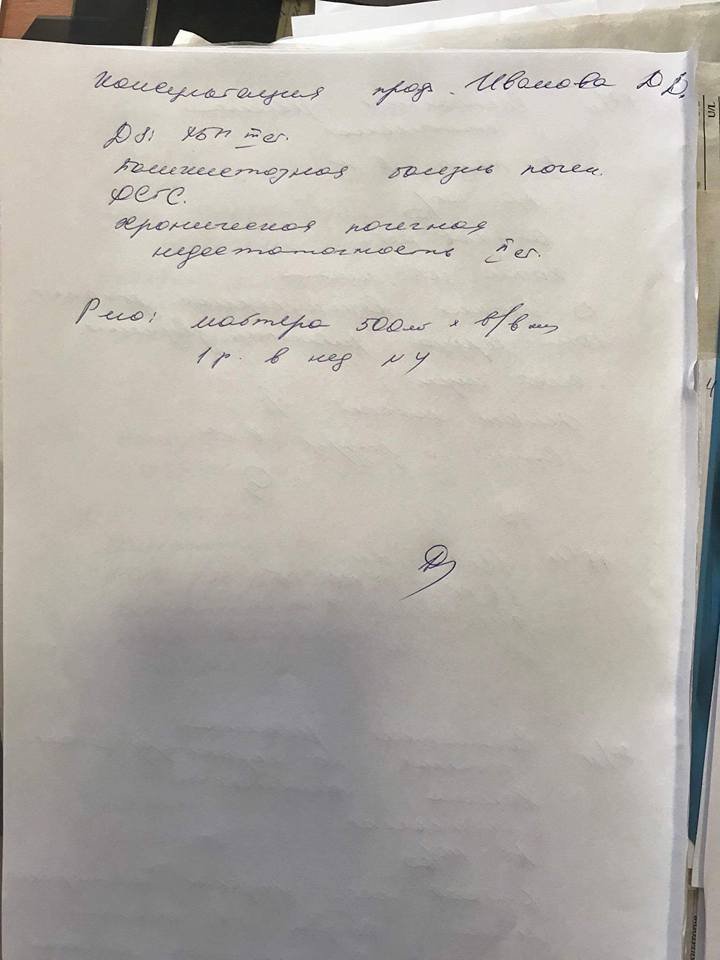 Консультация проф. Иванова Д Д.
DS: ХБП III ст.
Поликистозная болезнь почек.
ФСГС.
Хроническая почечная
недостаточность II ст.
Рно: мабтера 500мг × в/в
1 р. в нед N4